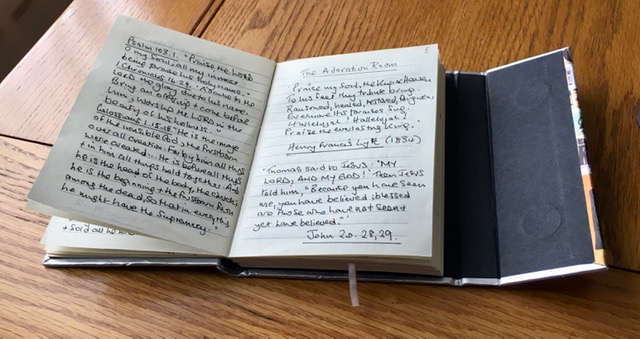 Psalm 103.1. "Praise the LORD
O my soul; all my inmost
being praise his holy name."
1 Chronicles 16.29. "Ascribe to the
LORD the glory due to his name.
Bring an offering + come before
him; worship the LORD in the
beauty of his holiness."
Colossians 1.15-18 "He is the image
of the invisible God, the firstborn
over all creation. For by him all things
were created. He is before all things
+ in him all things hold together. And
he is the head of the body, the church;
he is the beginning + the firstborn from
among the dead, so that in everything
he might have the supremacy."
+ said all he
The Adoration Room
Praise my soul, the King of Heaven,
To his feet thy tribute bring.
Ransomed, healed, restored, forgiven,
Evermore his praises sing.
Hallelujah! Hallelujah!
Praise the everlasting King.
Henry Francis Lyte (1834)
'Thomas said to Jesus: "MY
LORD, AND MY GOD!" Then Jesus
told him, "Because you have seen
me, you have believed; blessed
are those who have not seen +
yet have believed."'
John 20.28,29.